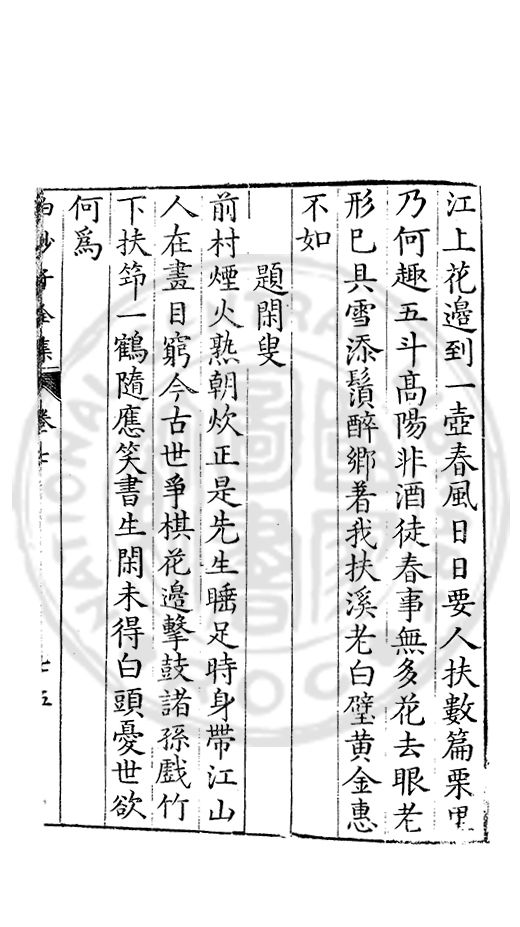 江上花邉到一壺春風日日要人扶數篇栗里
乃何趣五斗高陽非酒徒春事無多花去眼老
形已具雪添鬚醉鄉著我扶溪老白璧黄金惠
不如
題閑叟
前村煙火熟朝炊正是先生睡足時身帶江山
人在畫目窮今古世爭棋花邉擊鼓諸孫戲竹
下扶筇一鶴隨應笑書生閑未得白頭憂世欲
何爲
白沙子全集 卷七 七五